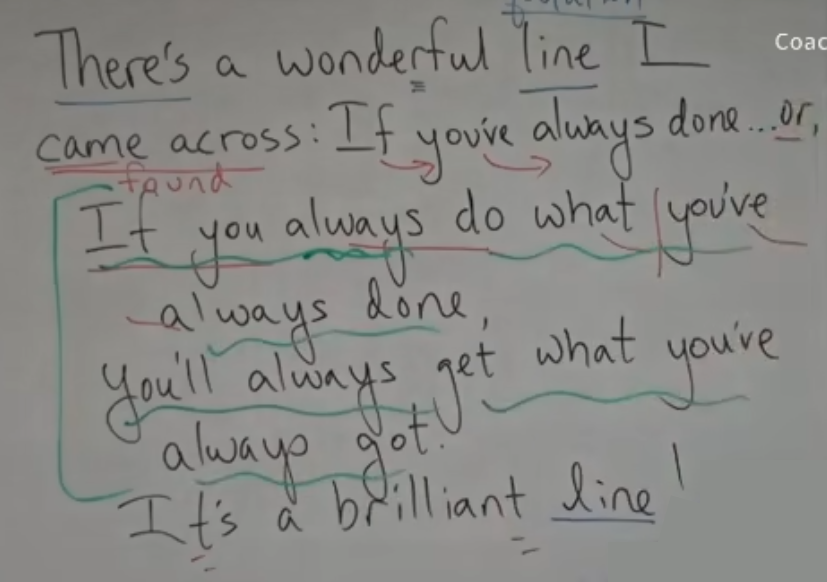 Coac
There's a wonderful line I
came across: If you've always done... or,
found
If you always do what you've
always done,
you'll always get what you've
always got.
It's a brilliant line!